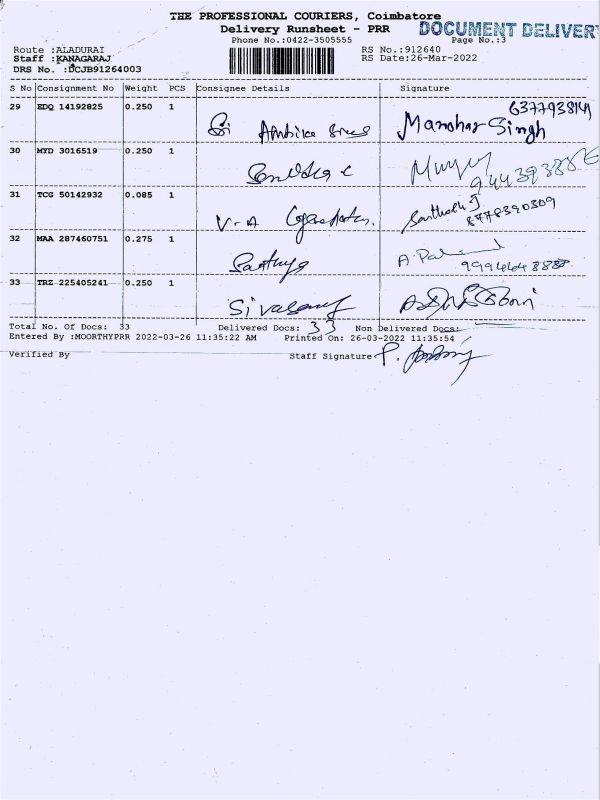 THE PROFESSIONAL COURIERS, Coimbatore
Delivery Runsheet - PRR
DOCUMENT DELIVER
Phone No.:0422-3505555
Page No.:3
Route :ALADURAI
RS No.:912640
Staff :KANAGARAJ
RS Date:26-Mar-2022
DRS No. :DCJB91264003
S No Consignment No Weight PCS Consignee Details Signature
29 EDQ 14192825 0.250 1 Sri Ambika Manohar Singh
30 MYD 3016519 0.250 1
31 TCG 50142932 0.085 1 V-A Santhosh J
8778390309
32 MAA 287460751 0.275 1 Sathya
33 TRZ 225405241 0.250 1
Total No. Of Docs: 33 Delivered Docs: 33 Non Delivered Docs:
Entered By :MOORTHYPRR 2022-03-26 11:35:22 AM Printed On: 26-03-2022 11:35:54
Verified By Staff Signature